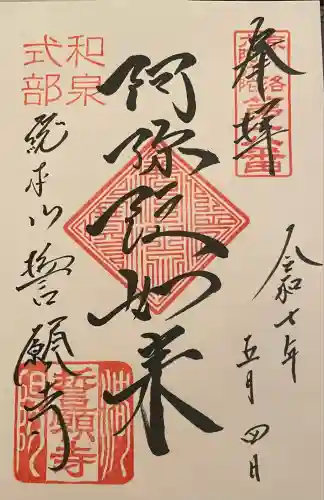 奉拝
阿弥陀如来
和泉
式部
総本山誓願寺
誓願寺
令和七年
五月四日